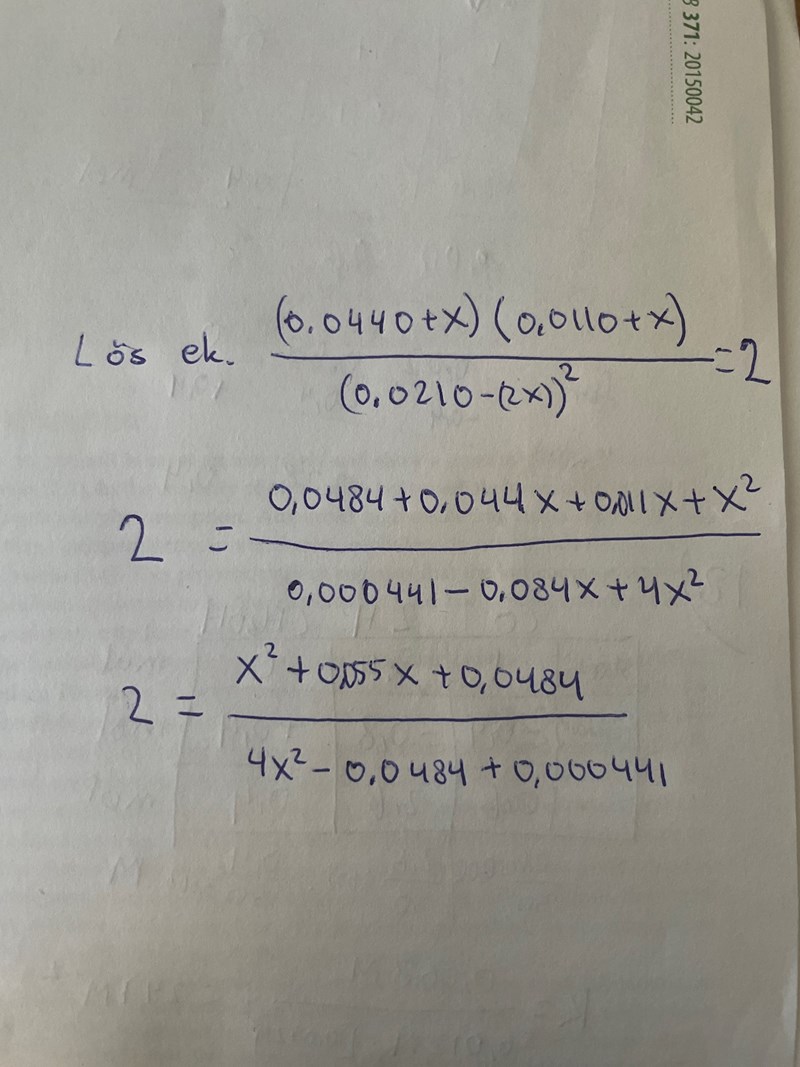 8 371: 20150042
Lös ek. (0.0440+x) (0,0110+x) / (0,0210-(2x))² = 2
2 = 0,0484+0,044x+0,011x+x² / 0,000441-0,084x+4x²
2 = x²+0,055x+0,0484 / 4x²-0,0484+0,000441